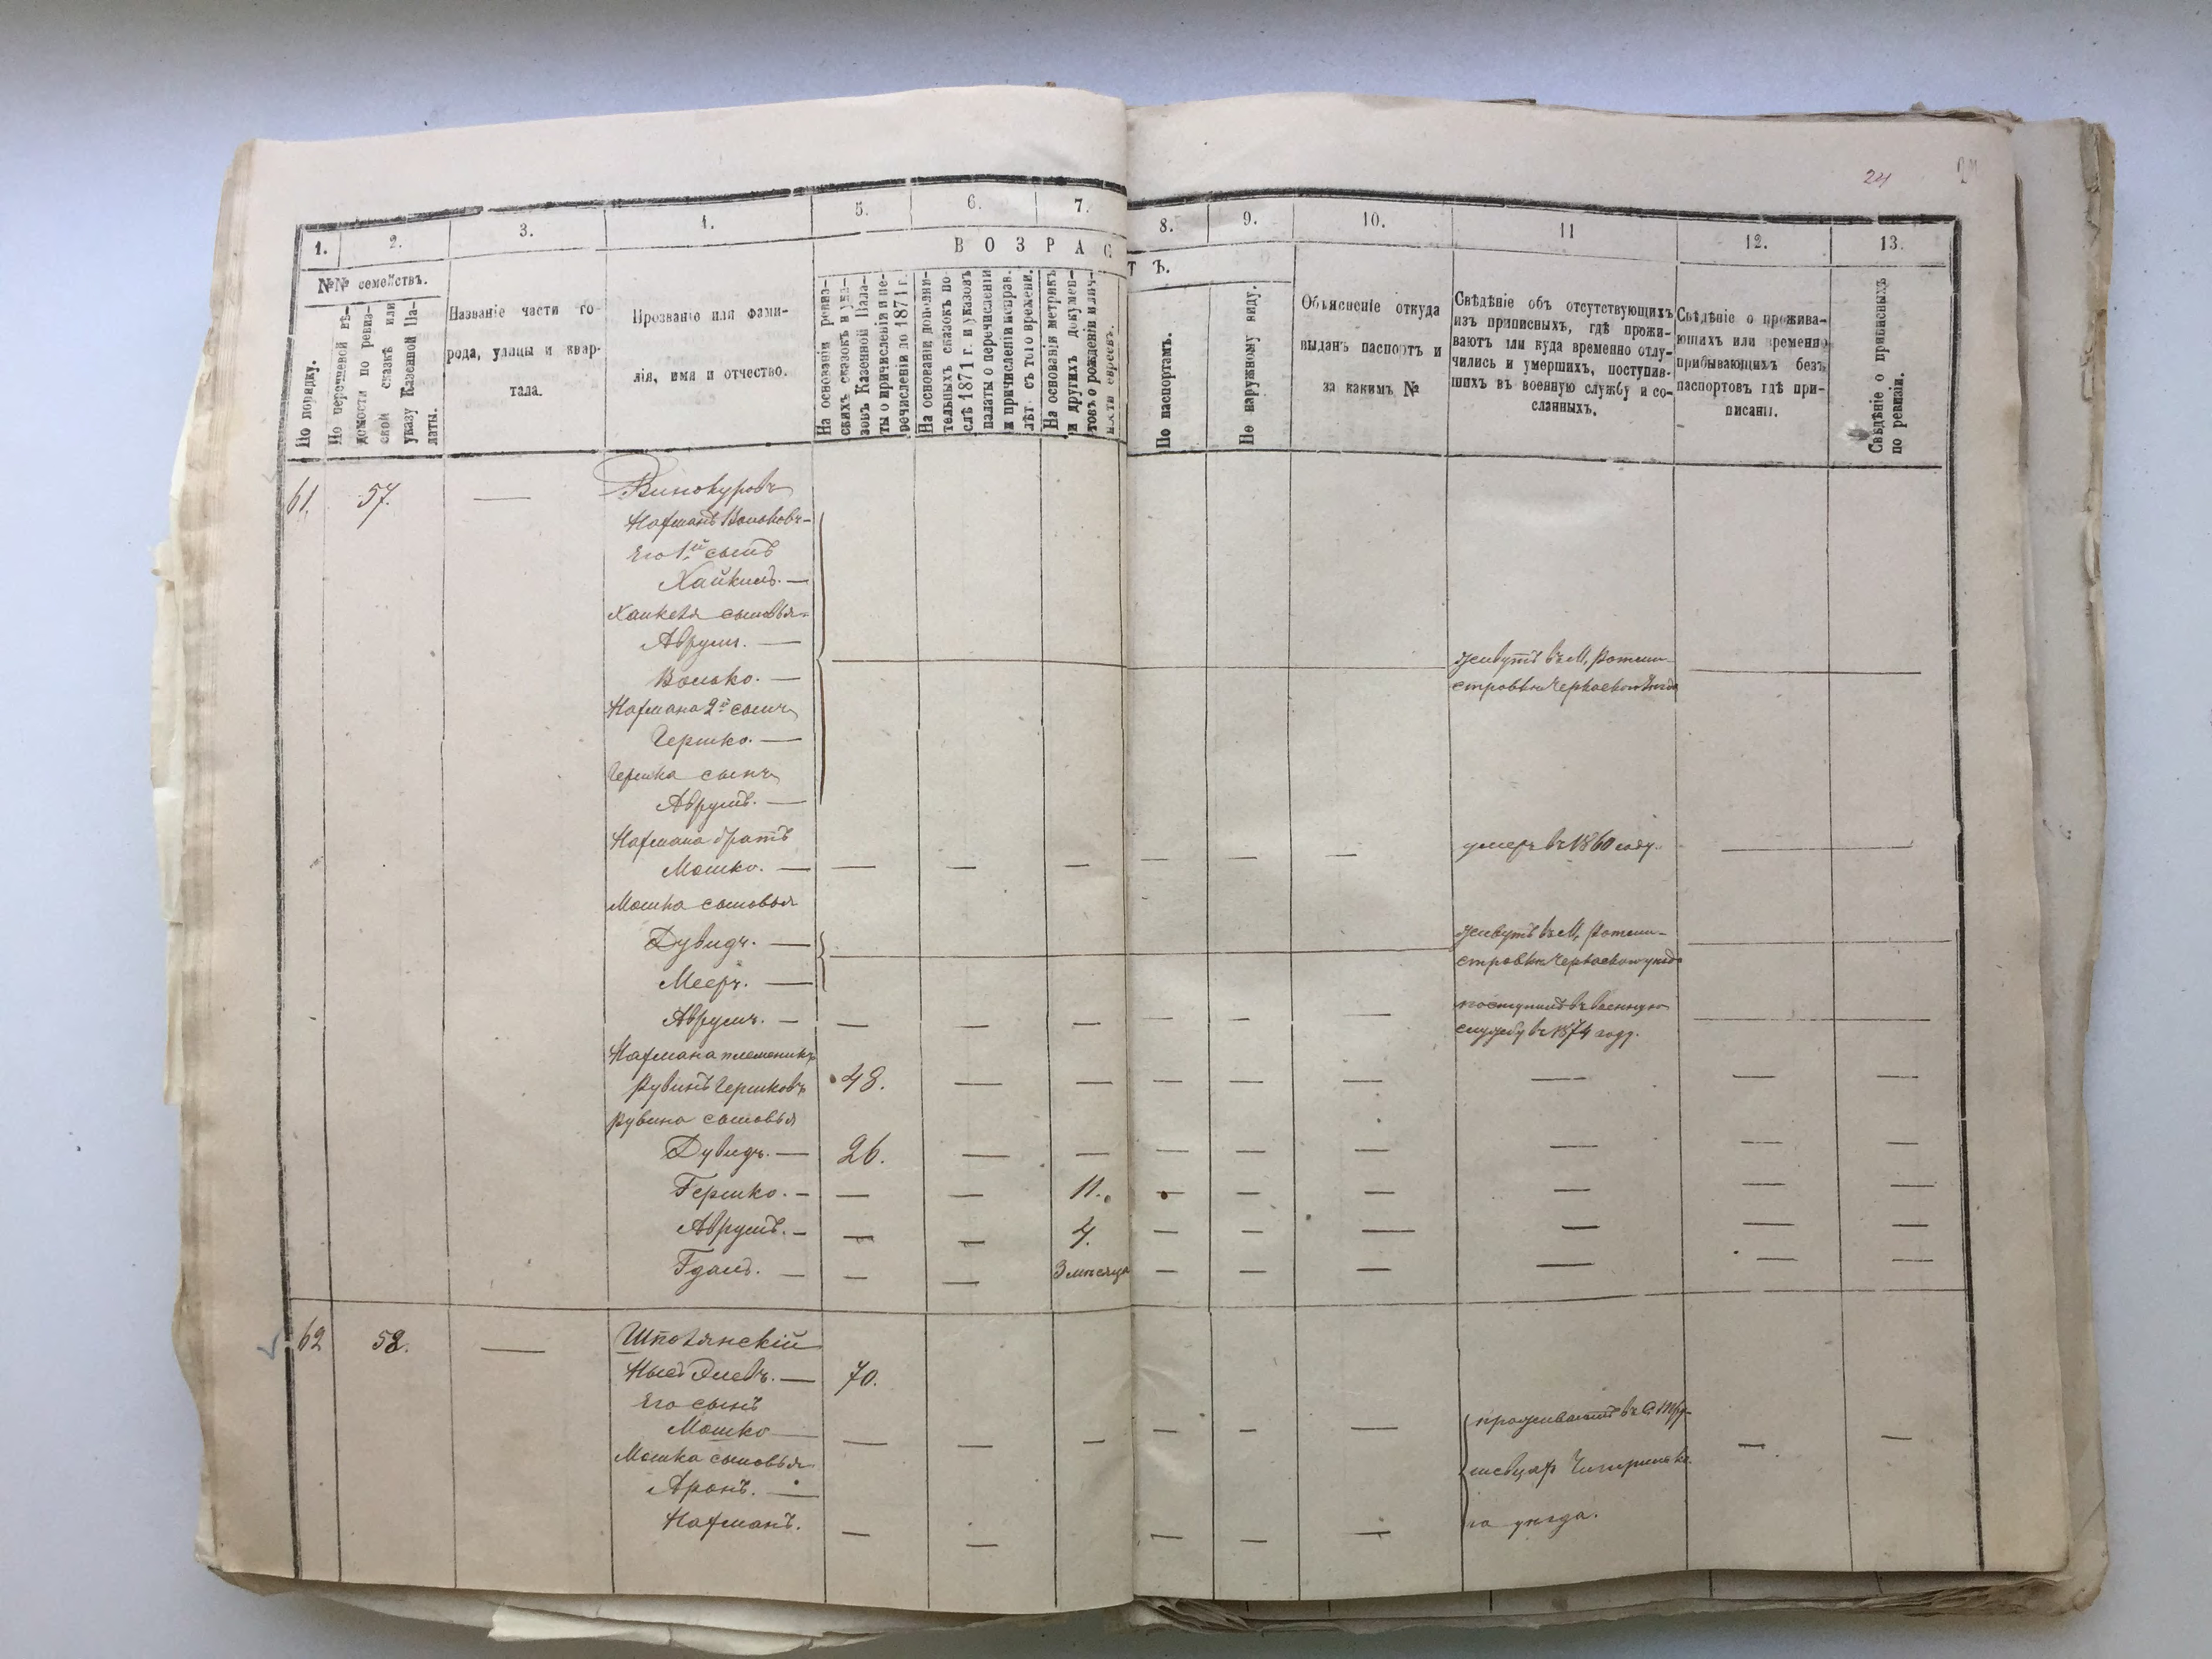 24
1. 2. 3. 4. 5. 6. 7. 8. 9. 10. 11 12. 13.
ВОЗРАС
ТЪ.
№№ семействъ.
По порядку.
По перечневой вѣ-
домости по ревиз-
ской сказкѣ или
указу Казенной Па-
латы.
Названіе части го-
рода, улицы и квар-
тала.
Прозваніе или фами-
лія, имя и отчество.
На основаніи ревиз-
скихъ сказокъ и ука-
зовъ Казенной Пала-
ты о причисленіи и пе-
речисленіи до 1871 г.
На основаніи дополни-
тельныхъ сказокъ по-
слѣ 1871 г. и указовъ
палаты о перечисленіи
и причисленіи исправ.
лѣт. съ того времени.
На основаніи метрикъ
и другихъ докумен-
товъ о рожденіи и лич-
ности евреевъ.
По паспортамъ.
По наружному виду.
Объясненіе откуда
выданъ паспортъ и
за какимъ №
Свѣдѣніе объ отсутствующихъ
изъ приписныхъ, гдѣ прожи-
ваютъ или куда временно отлу-
чились и умершихъ, поступив-
шихъ въ военную службу и со-
сланныхъ.
Свѣдѣніе о прожива-
ющихъ или временно
прибывающихъ безъ
паспортовъ гдѣ при-
писаны.
Свѣдѣніе о приписныхъ
по ревизіи.
61. 57. — Винокуровъ
Нахманъ Вольковъ —
Его 1й сынъ
Хайкель. —
Хайкеля сыновья
Аврумъ. —
Волько. — живутъ въ М. Ротми-
стровкѣ Черкаскаго уѣзда
Нахмана 2й сынъ
Гершко. —
Гершка сынъ
Аврумъ. —
Нахмана братъ
Мошко. — — — — — — — умеръ въ 1860 году. —
Мошка сыновья
Дувидъ. — живутъ въ М. Ротми-
Мееръ. — стровкѣ Черкаскаго уѣзда
Аврумъ. — — — — — — — поступилъ въ военную
службу въ 1874 году. —
Нахмана племеникъ
Рувинъ Гершковъ 48. — — — — — — — —
Рувина сыновья
Дувидъ. — 26. — — — — — — — —
Гершко. — — — 11. — — — — — —
Аврумъ. — — — 4. — — — — — —
— — — 3 мѣсяца — — — — — —
62 58. — Шполянскій
70.
Его сынъ
Мошко — — — — — — — проживаютъ въ С.
Мошка сыновья
Аронъ. — Чигиринска
Нахманъ. — — — — — го уѣзда.